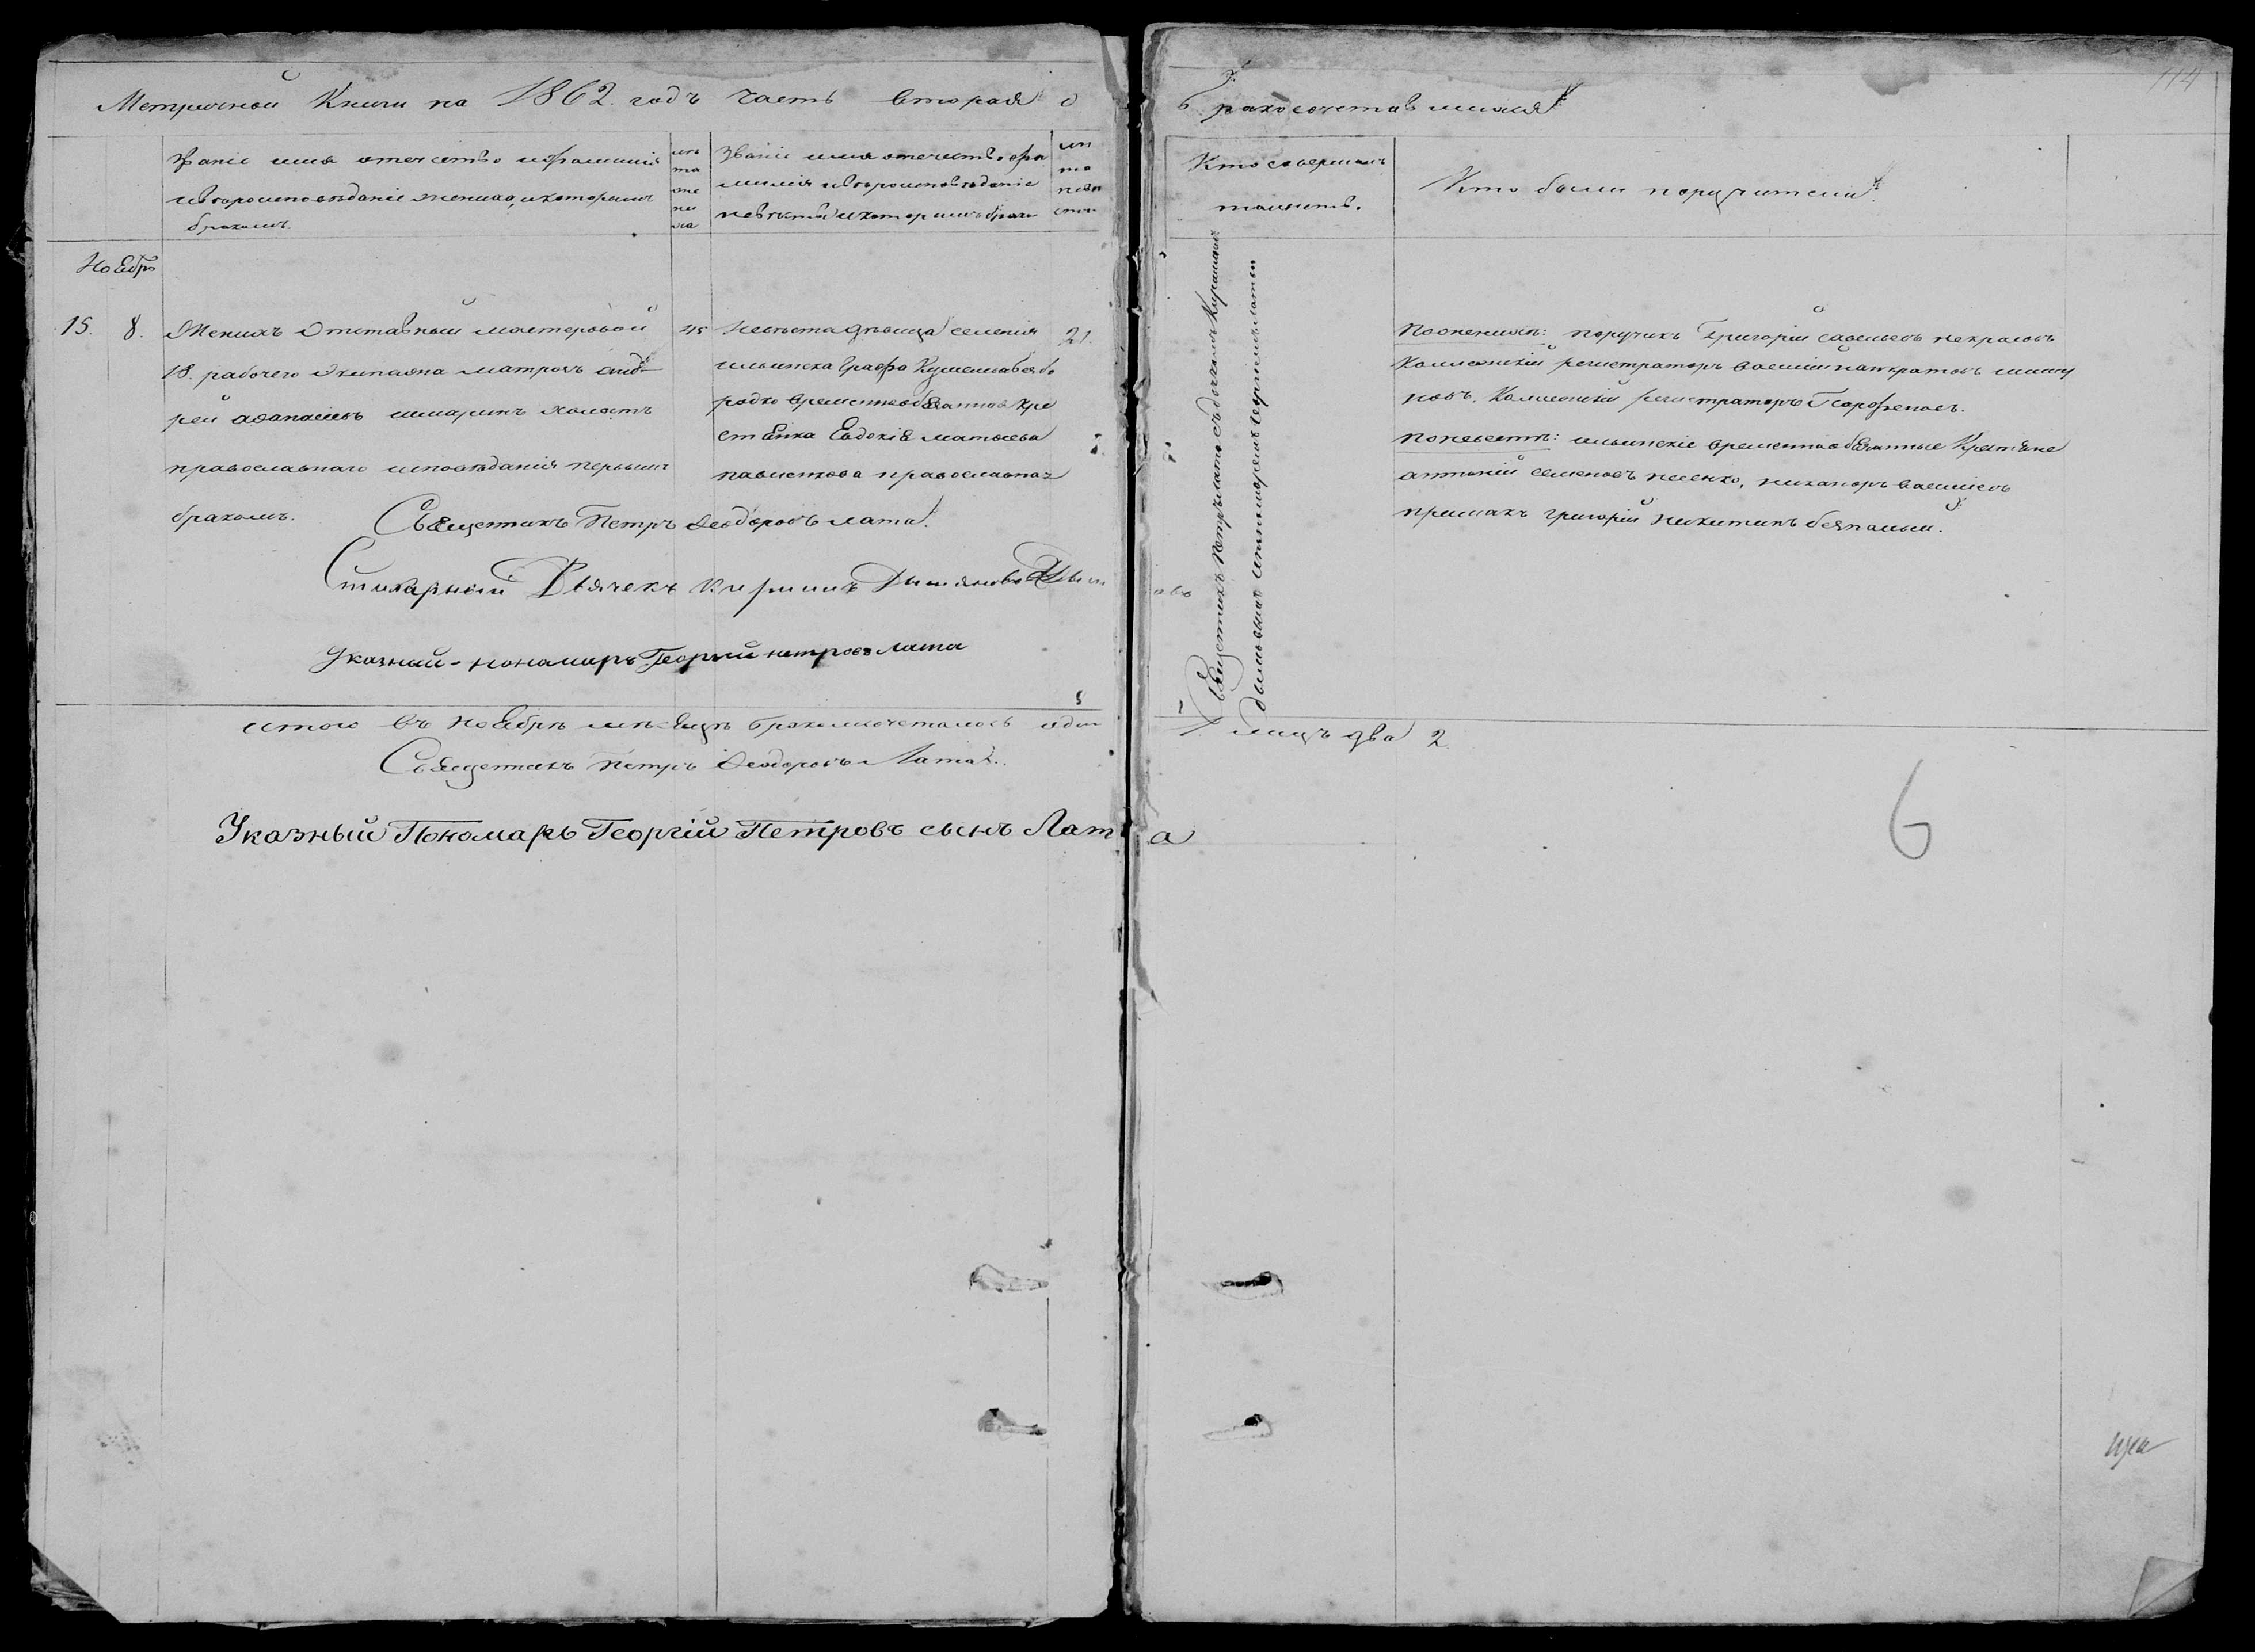 Метричной Книги на 1862. годъ часть вторая о
бракосочетавшихся
114
Званіе имя отечество и фамилія
и вѣроисповѣданіе жениха, и которымъ
бракомъ.
лѣ
та
же
ни
ха
Званіе имя отечество фа
милія и вѣроисповѣданіе
невѣсты и которимъ брако
лѣ
та
невѣ
сты
Кто совершалъ
таинств.
Кто были поручители.
Ноябрь
15. 8.
Женихъ Отставный мастеровой
18. рабочего Экипажа матросъ анд
рей аѳанасіевъ холостъ
православнаго исповѣданія первымъ
бракомъ.
45
Невѣста дѣвица селенія
ильинска Графа Кушелева безбо
родко временнообязанной кре
стянка Евдокія матвѣева
православнаг
21.
По женихѣ: поручикъ Григорій савельевъ некрасовъ
Коллежскій регистраторъ василій панкратовъ
новъ. Коллежскій регистраторъ Парфеновъ.
По невестѣ: ильинскіе временнообязанные Крестяне
антоній семеновъ песенко, никаноръ василіевъ
примакъ григорій никитинъ безпалый.
Священникъ Петръ Лата съ дьячкомъ Кириломъ
дымовымъ и пономаремъ Георгіемъ латой
Священникъ Петръ Ѳеодоровъ лата.
Стихарный Дьячекъ Кирилъ
Указный пономарь Георгій петровъ Лата
итого въ ноябрѣ мѣсяцѣ бракомсочеталось один
1. лицъ два 2
Священникъ Петръ Ѳеодоровъ Лата.
Указный Пономарь Георгій Петровъ сынъ Лата
6